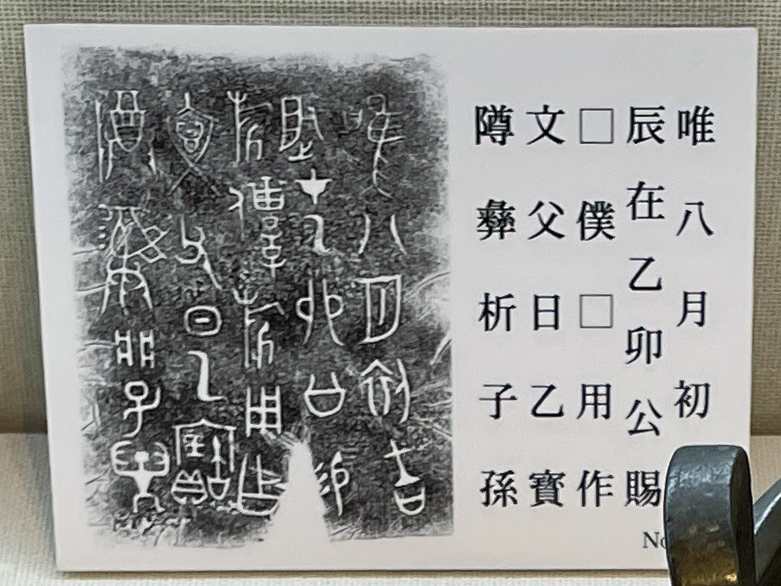 唯八月初
辰在乙卯公賜
□僕□用作
文父日乙寶
尊彝析子孫
No